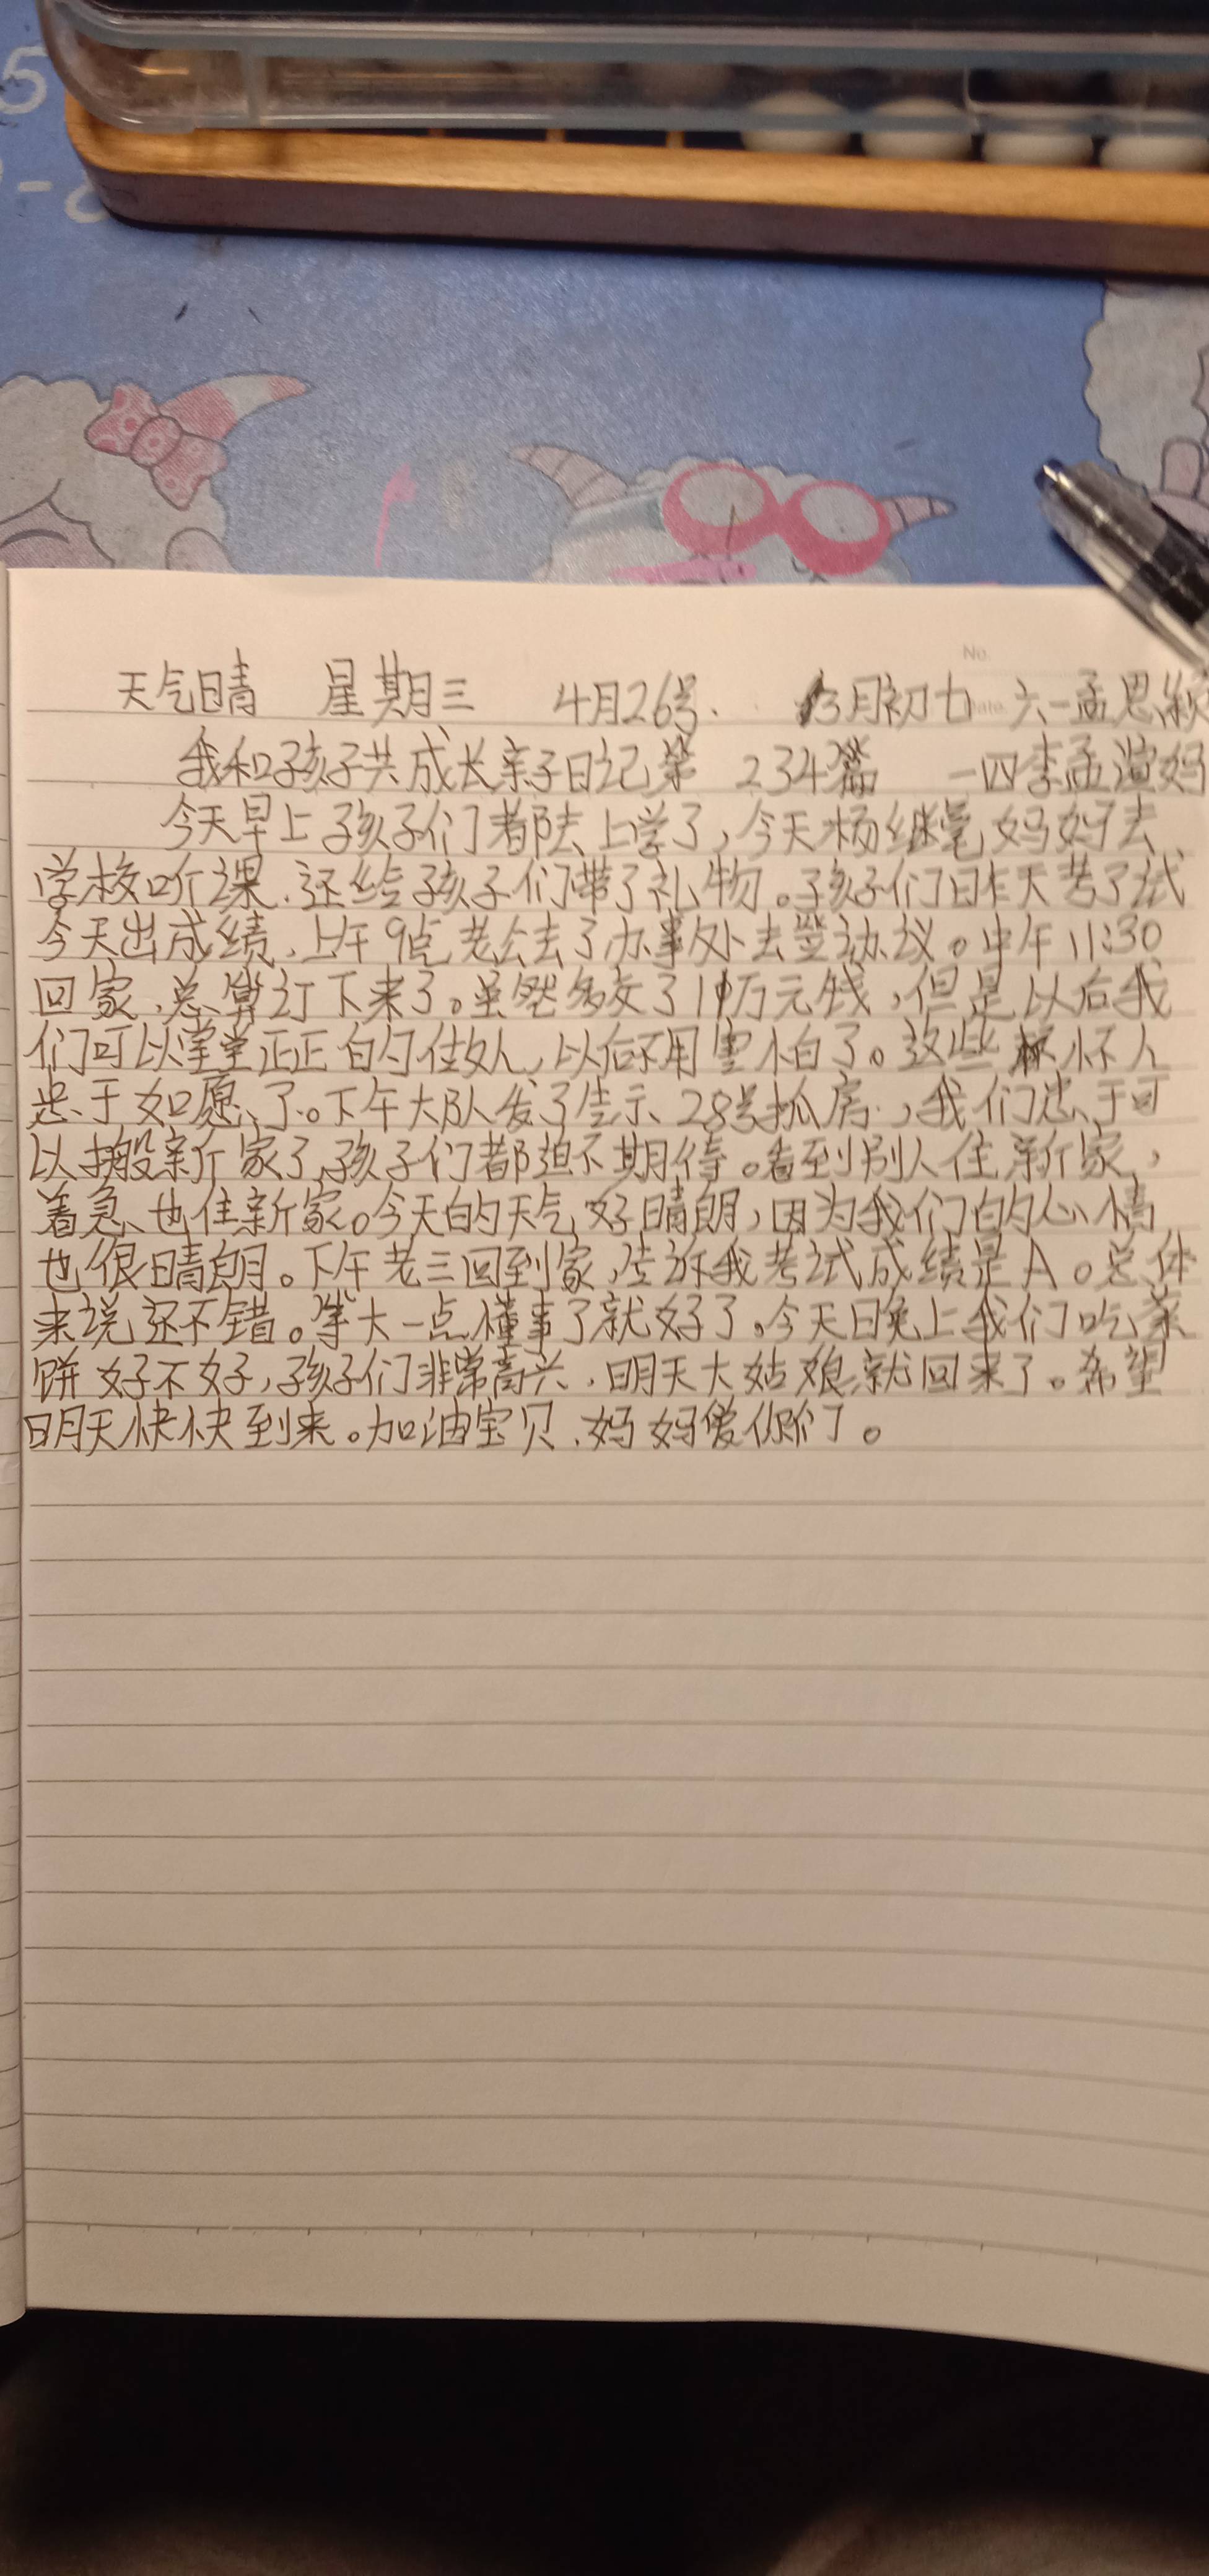 5
No.
天气晴 星期三 4月26号. 3月初七 六一孟思颖
我和孩子共成长亲子日记第 234篇 一四李孟滢妈
今天早上孩子们都去上学了,今天杨继毫妈妈去
学校听课.还给孩子们带了礼物。孩子们昨天考了试
今天出成绩.上午9点老公去了办事处去签协议。中午11:30
回家.总算订下来了。虽然多交了1万元钱,但是以后我
们可以堂堂正正的住处,以后不用害怕了。这些坏人
忠于如愿了。下午大队发了告示28号抓房.,我们忠于可
以搬新家了,孩子们都迫不期待。看到别人住新家,
着急也住新家。今天的天气好晴朗,因为我们的心情
也很晴朗。下午老三回到家,告诉我考试成绩是A。总体
来说还不错。等大一点懂事了就好了。今天晚上我们吃菜
饼好不好,孩子们非常高兴.明天大姑娘就回来了。希望
明天快快到来。加油宝贝.妈妈爱你们。